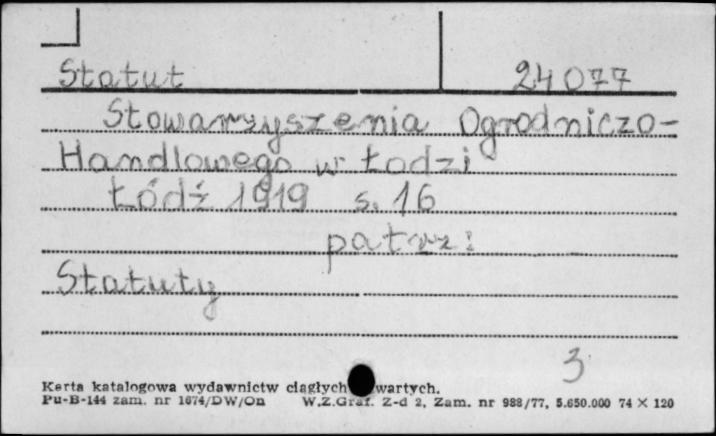 Statut 24077
Stowarzyszenia Ogrodniczo-
Handlowego w Łodzi
Łódź 1919 s. 16
patrz:
Statuty
3
Karta katalogowa wydawnictw ciągłych wartych.
Pu-B-144 zam. nr 1674/DW/On W.Z.Graf. Z-d 2, Zam. nr 988/77, 5.650.000 74 × 120